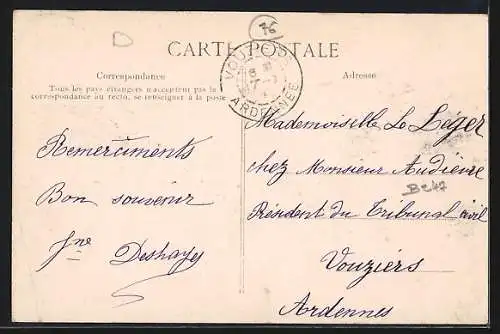 D
76
CARTE POSTALE
Correspondance
Tous les pays étrangers n'acceptent pas la
correspondance au recto, se renseigner à la poste
Adresse
ARDENNES
Remerciments
Bon souvenir
Jne Deshayes
Mademoiselle Le Léger
chez Monsieur Audieure
Président du Tribunal civil
Vouziers
Ardennes